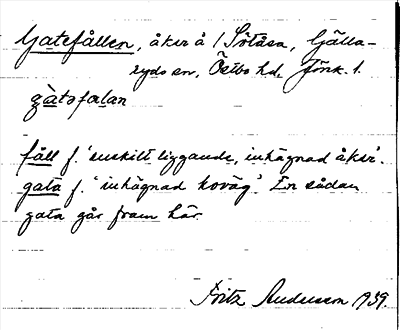 Gatefållen, åker å /Sötåsa, Gälla-
ryds sn, Östbo hd. Jönk. l.
gàtəfɷlan
fåll f. 'enskilt liggande, inhägnad åker'.
gata f. 'inhägnad koväg'. En sådan
gata går fram här.
Fritz Andersson 1939.